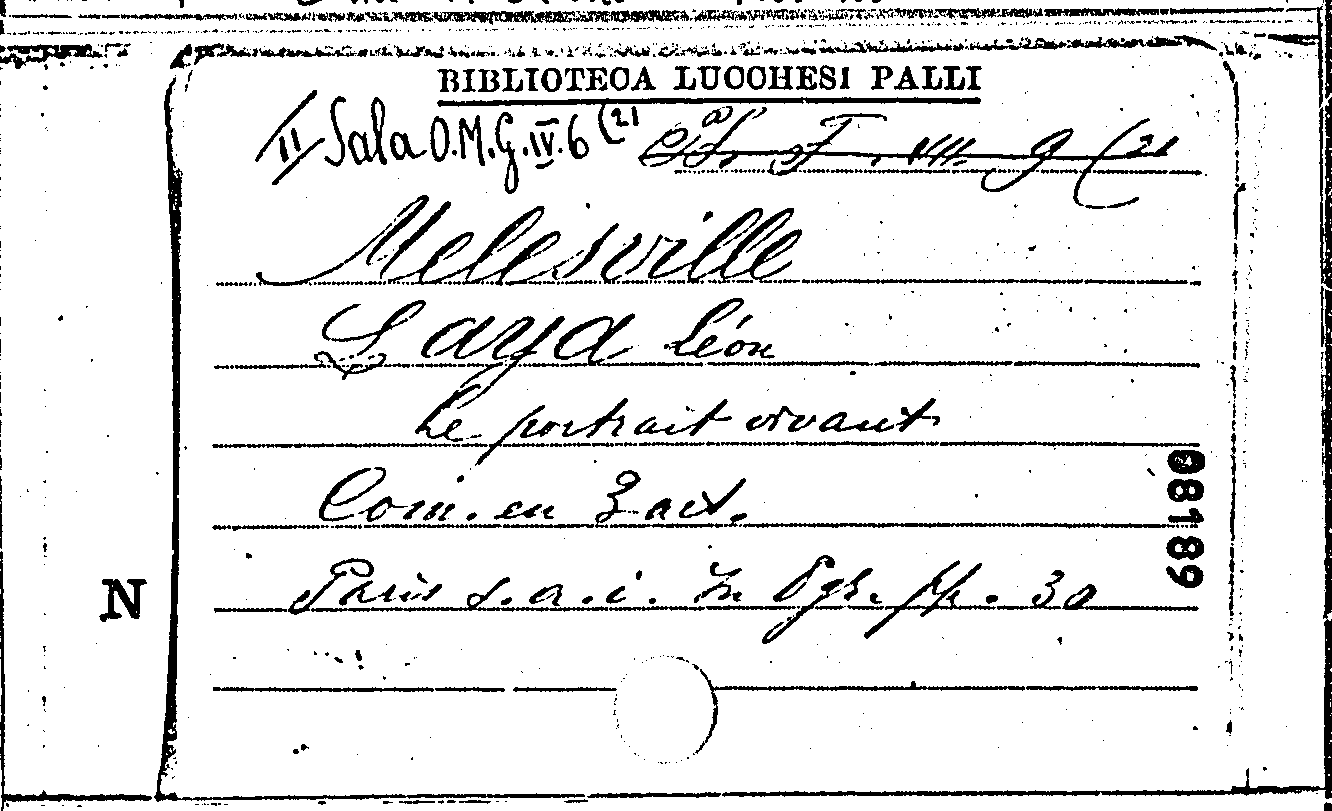 BIBLIOTECA LUCCHESI PALLI
II Sala O.M.G. IV. 6 (21 F. VIII. 9 (21
Melesville
Laya Léon
Le portrait vivant
Com. en 3 act.
Paris s. a. i. In 8gr. pp. 30
N
68189